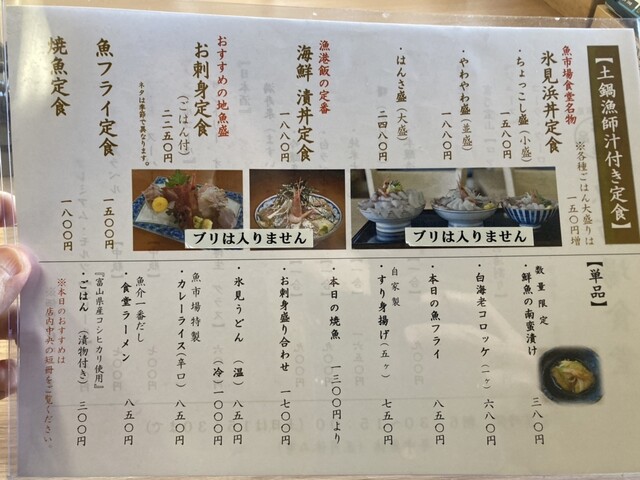 【土鍋漁師汁付き定食】
※各種ごはん大盛りは
一五〇円増
魚市場食堂名物
氷見浜丼定食
・ちょっこし盛(小盛)
一五八〇円
・やわやわ盛(並盛)
一八八〇円
・はんさ盛(大盛)
二四八〇円
漁港飯の定番
海鮮 漬丼定食
一八八〇円
おすすめの地魚盛
お刺身定食
(ごはん付)
二二五〇円
ネタは季節で異なります。
魚フライ定食
一五〇〇円
焼魚定食
一八〇〇円
ブリは入りません
ブリは入りません
【単品】
数量限定
・鮮魚の南蛮漬け
三八〇円
・白海老コロッケ(一ヶ)
六八〇円
・本日の魚フライ
八五〇円
自家製
・すり身揚げ(五ヶ)
七五〇円
・本日の焼魚
一三〇〇円より
・お刺身盛り合わせ
一七〇〇円
・氷見うどん(温)
八五〇円
(冷)一〇〇〇円
魚市場特製
・カレーライス(辛口)
八五〇円
魚介一番だし
・食堂ラーメン
八五〇円
『富山県産コシヒカリ使用』
・ごはん(漬物付き)
三〇〇円
※本日のおすすめは
店内中央の短冊をご覧ください。